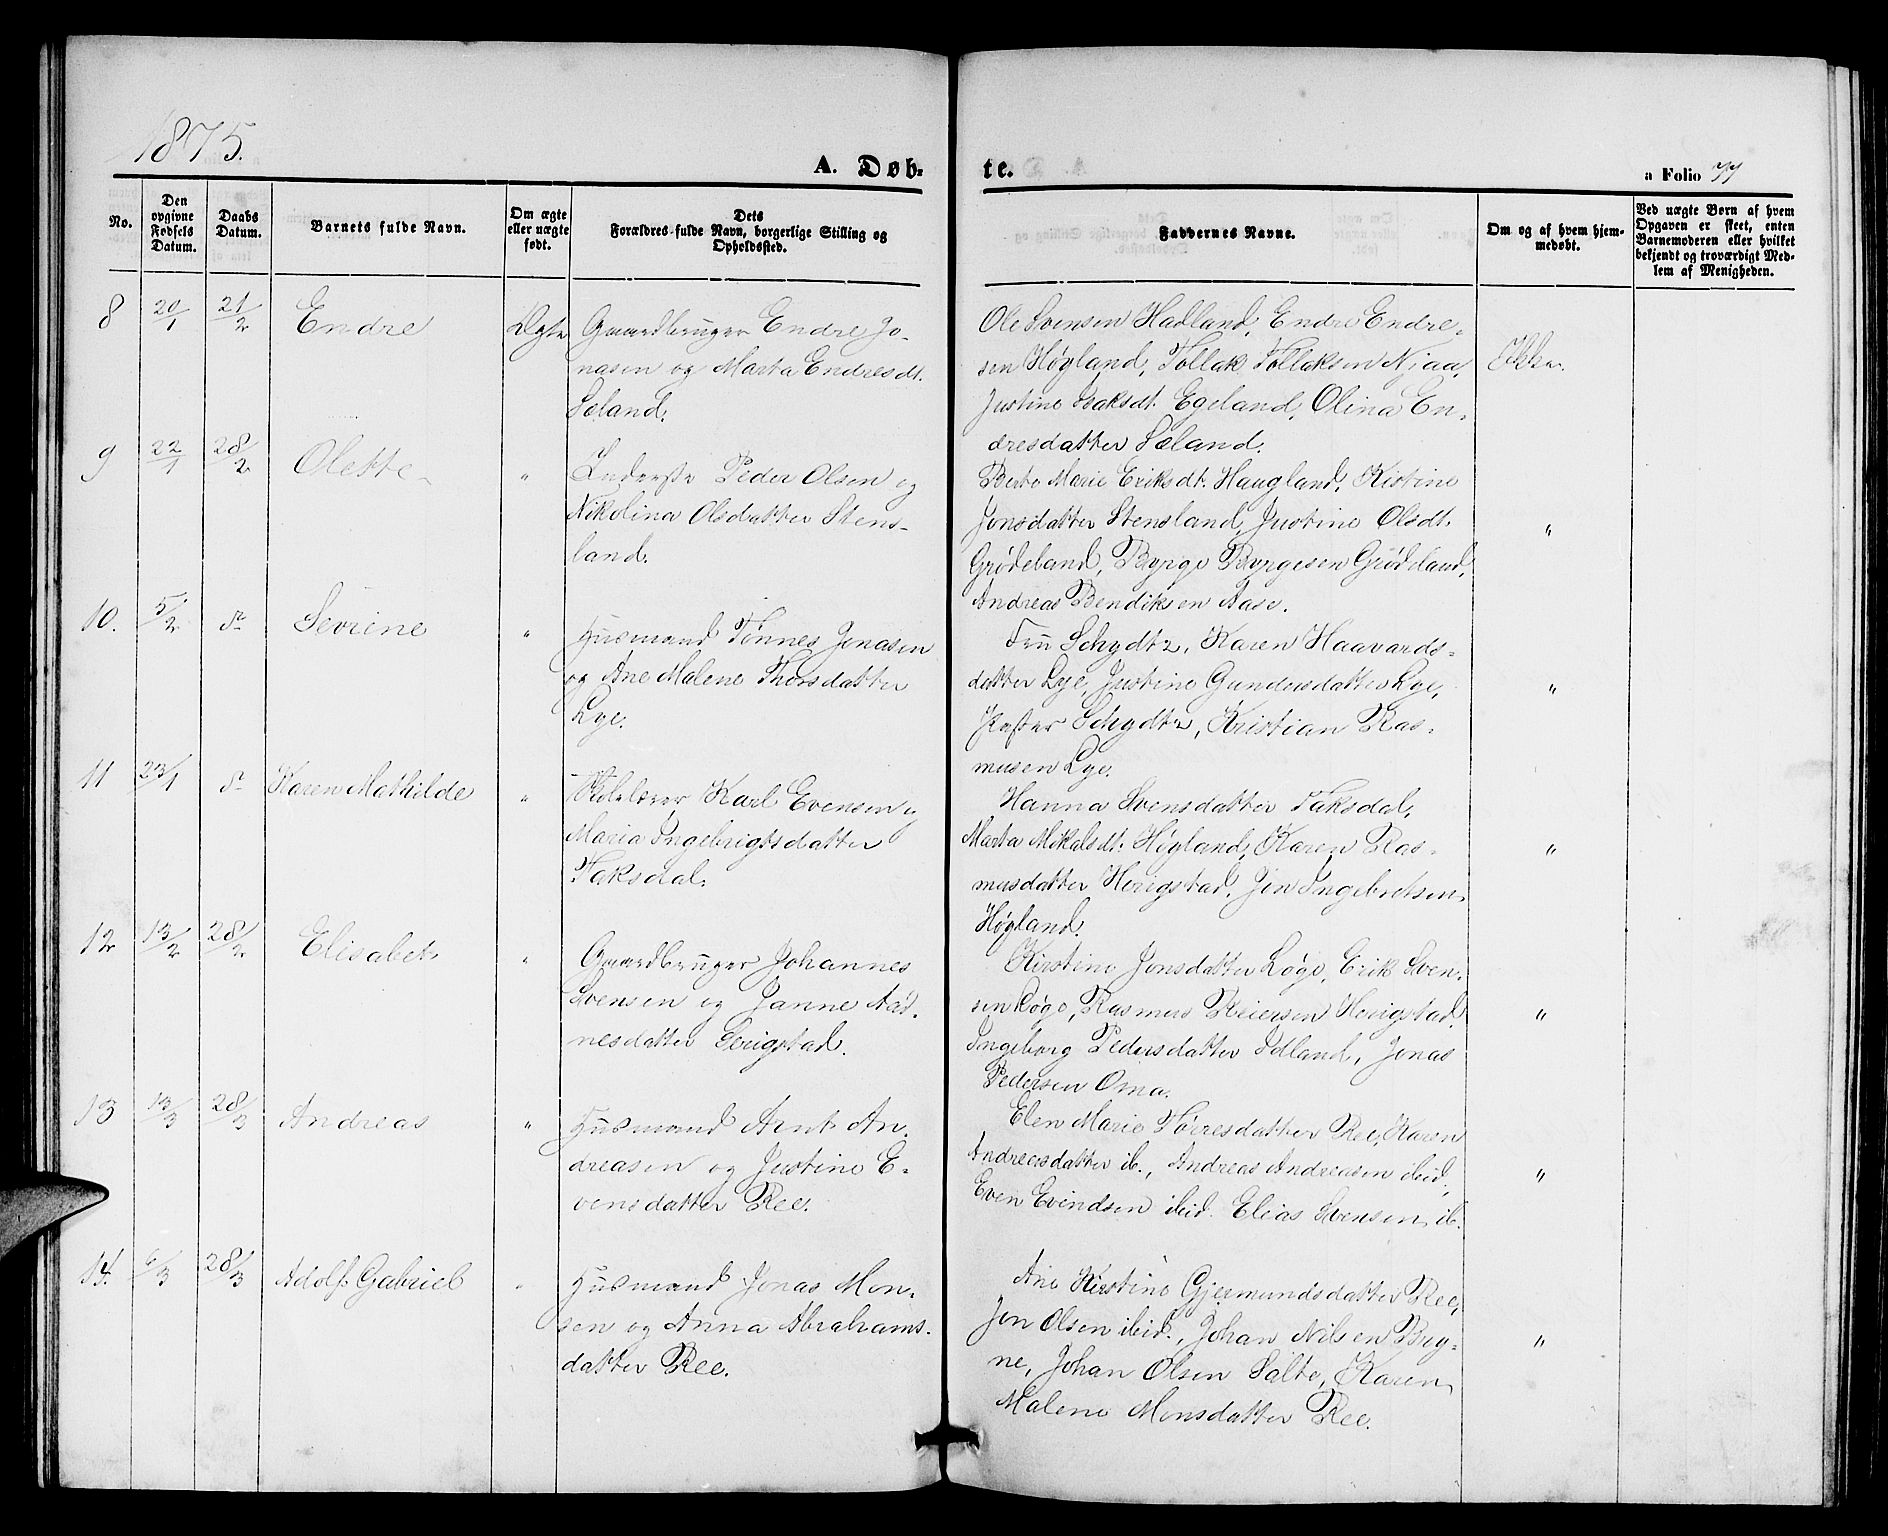 1875.
A. Døb-
te.
a Folio 77
No.
Den opgivne Fødsels Datum.
Daabs Datum.
Barnets fulde Navn.
Om ægte eller uægte født.
Dets Forældres fulde Navn, borgerlige Stilling og Opholdssted.
Faddernes Navne.
Om og af hvem hjemmedøbt.
Ved uægte Børn af hvem Opgaven er skeet, enten Barnemoderen eller hvilket bekjendt og troværdigt Medlem af Menigheden.
8 20/1 21/2 Endre Ægte Gaardbruger Endre Jo-
nasen og Marta Endresdt.
Sæland.
Ole Svensen Hadland, Endre Endre-
sen Høgland, Tollak Tollaksen Njaa,
Justine Isaksdt. Egeland, Olina En-
dresdatter Sæland.
Ikke.
9 22/1 28/2 Olette " Inderste Peder Olsen og
Nikolina Olsdatter Stens-
land.
Berte Marie Eriksdt. Haugland, Kistine
Jonsdatter Stensland, Justine Olsdt.
Grødeland, Byrge Byrgesen Grødeland,
Andreas Bendiksen Aase.
"
10. 5/2 do Sevrine " Husmand Tønnes Jonasen
og Ane Malene Thorsdatter
Lye.
Fru Schydtz, Karen Haavards-
datter Lye, Justine Gundersdatter Lye,
Pastor Schydtz, Kristian Ras-
musen Lye.
"
11 23/1 do Karen Mathilde " Skolelærer Karl Evensen og
Maria Ingebrigtsdatter
Taksdal.
Hanna Svensdatter Taksdal,
Marta Mikalsdt. Høgland, Karen Ras-
musdatter Herigstad, Jon Ingebretsen
Høgland.
"
12 13/2 28/2 Elisabet " Gaardbruger Johannes
Svensen og Janne Aad-
nesdatter Serigstad.
Kirstine Jonsdatter Løge, Erik Sven-
sen Løge, Rasmus Reiersen Herigstad,
Ingeborg Pedersdatter Idland, Jonas
Pedersen Oma.
"
13 13/3 28/3 Andreas " Husmand Arnt An-
dreasen og Justine E-
vensdatter Ree.
Elen Marie Tørresdatter Ree, Karen
Andreasdatter ib., Andreas Andreasen ibid.,
Even Evindsen ibid. Elias Svensen ib.
"
14. 6/3 28/3 Adolf Gabriel " Husmand Jonas Mon-
sen og Anna Abrahams-
datter Ree.
Ane Kirstine Gjermundsdatter Ree,
Jon Olsen ibid., Johan Nilsen Bry-
ne, Johan Olsen Salte, Karen
Malene Monsdatter Ree.
"